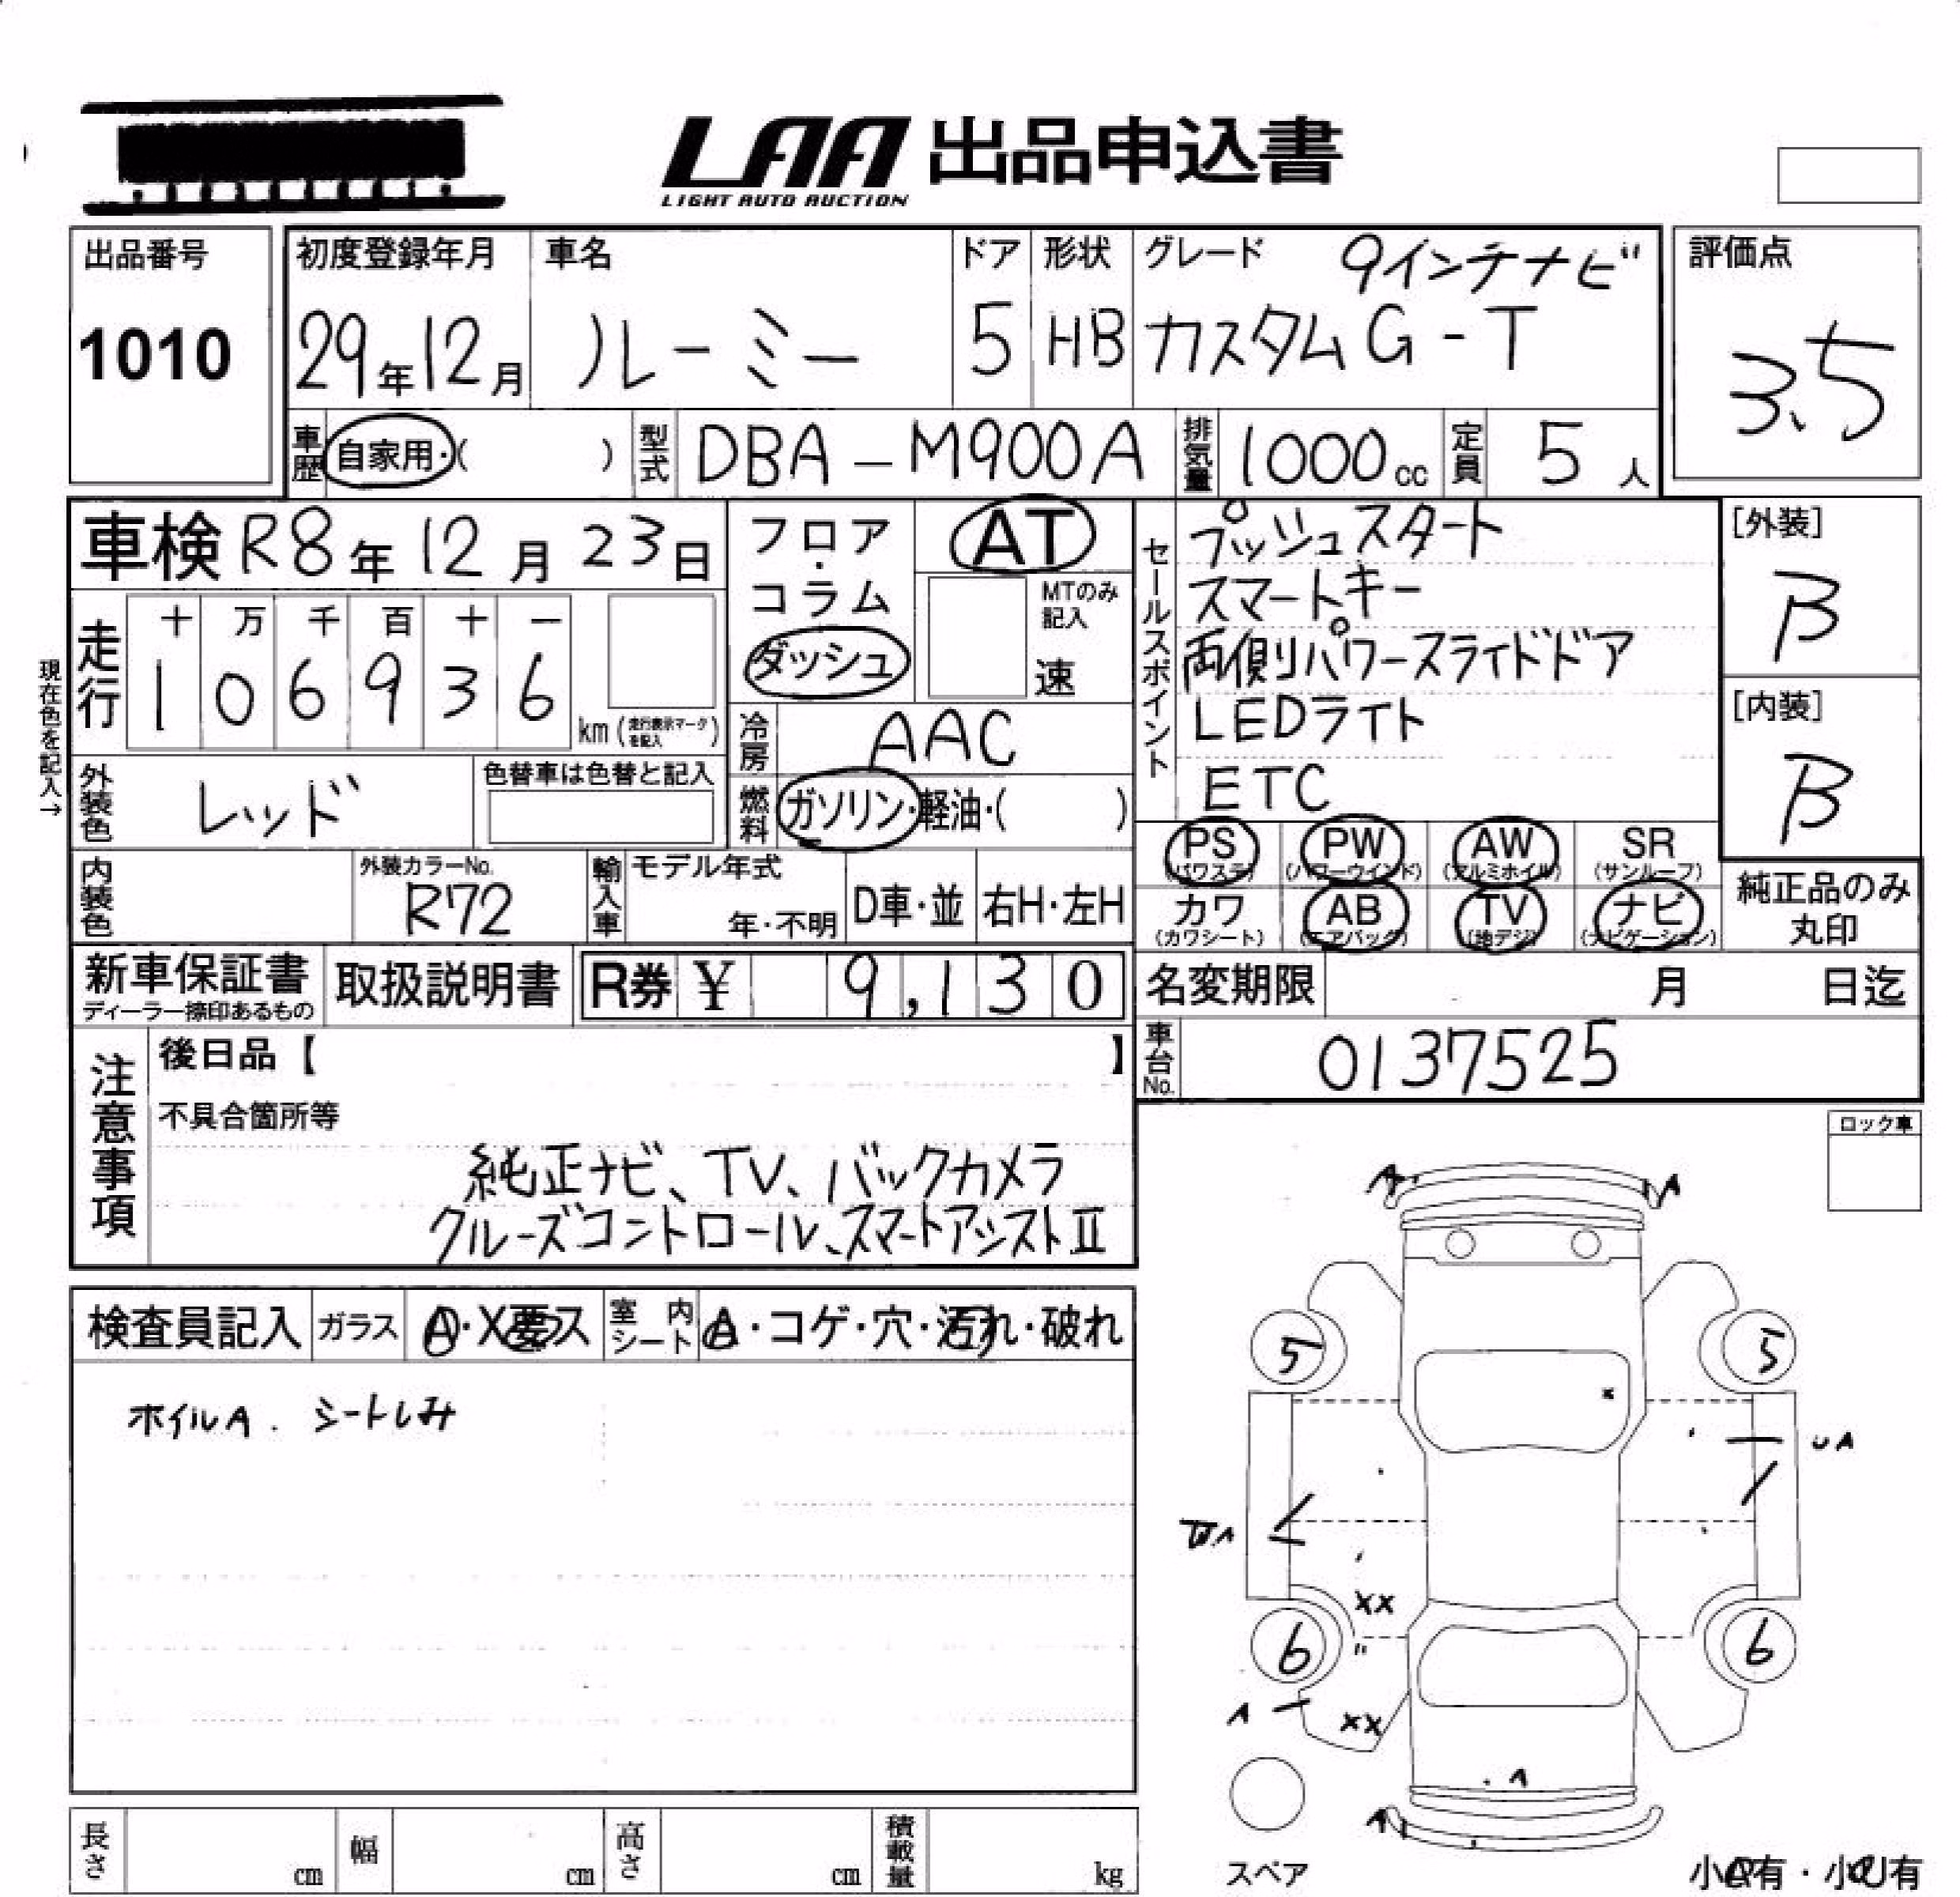 LAA 出品申込書
LIGHT AUTO AUCTION
出品番号
1010
初度登録年月
29年12月
車名
ルーミー
ドア
5
形状
HB
グレード 9インチナビ
カスタムG-T
評価点
3.5
車歴 自家用・( )
型式 DBA-M900A
排気量 1000cc
定員 5人
車検 R8年12月23日
フロア・コラム
ダッシュ
AT
MTのみ記入
速
セールスポイント
プッシュスタート
スマートキー
両側パワースライドドア
LEDライト
ETC
[外装]
B
[内装]
B
現在色を記入→
走行
十 万 千 百 十 一
1 0 6 9 3 6
km(走行表示マークを記入)
冷房 AAC
外装色 レッド
色替車は色替と記入
燃料 ガソリン・軽油・( )
PS PW AW SR
(パワステ) (パワーウインド) (アルミホイル) (サンルーフ)
カワ AB TV ナビ
(カワシート) (エアバック) (地デジ) (ナビゲーション)
純正品のみ
丸印
内装色
外装カラーNo.
R72
輸入車
モデル年式
年・不明
D車・並
右H・左H
新車保証書
ディーラー捺印あるもの
取扱説明書
R券 ¥ 9,130
名変期限 月 日迄
車台No. 0137525
注意事項
後日品【 】
不具合箇所等
純正ナビ、TV、バックカメラ
クルーズコントロール、スマートアシストⅡ
ロック車
検査員記入
ガラス A・X要ス
室内シート A・コゲ・穴・汚れ・破れ
ホイルA. シートしみ
A A
5 5
UA
A
XX
6 6
A XX
A
A
スペア
長さ cm
幅 cm
高さ cm
積載量 kg
小A有・小U有